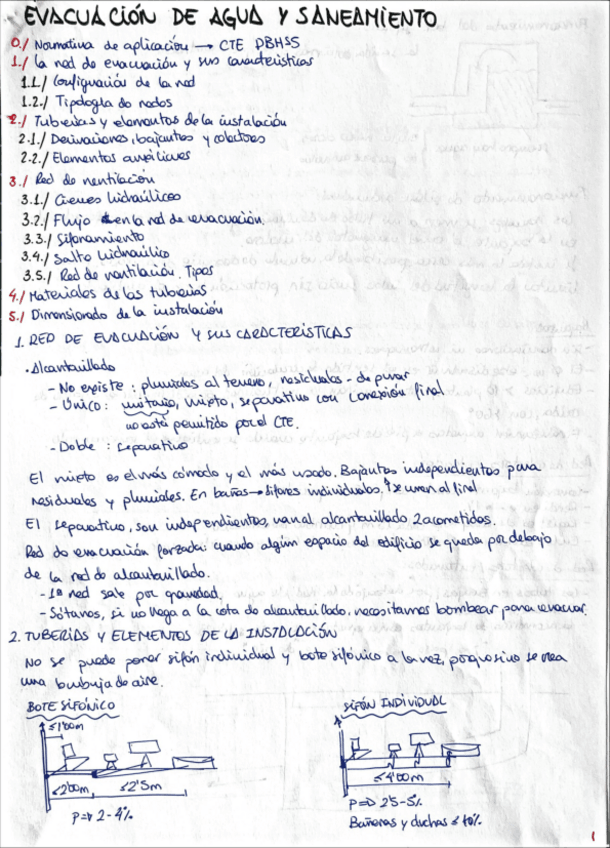 EVACUACIÓN DE AGUA Y SANEAMIENTO
0./ Normativa de aplicación → CTE DBHS5
1./ La red de evacuación y sus características
1.1./ Configuración de la red
1.2./ Tipología de redes
2./ Tuberías y elementos de la instalación
2.1./ Derivaciones, bajantes y colectores
2.2./ Elementos auxiliares
3./ Red de ventilación
3.1./ Cierres hidráulicos
3.2./ Flujo en la red de evacuación.
3.3./ Sifonamiento
3.4./ Salto hidráulico
3.5./ Red de ventilación. Tipos
4./ Materiales de las tuberías
5./ Dimensionado de la instalación
1. RED DE EVACUACIÓN Y SUS CARACTERÍSTICAS
· Alcantarillado
- No existe : pluviales al terreno, residuales - depurar
- Único : unitario, mixto, separativo con conexión final
no está permitido por el CTE.
- Doble : separativo
El mixto es el más cómodo y el más usado. Bajantes independientes para
residuales y pluviales. En baños → sifones individuales, ↑ se unen al final
El separativo, son independientes, van al alcantarillado 2 acometidas.
Red de evacuación forzada: cuando algún espacio del edificio se queda por debajo
de la red de alcantarillado.
- 1ª red sale por gravedad.
- Sótanos, si no llega a la cota de alcantarillado, necesitamos bombear para evacuar.
2. TUBERÍAS Y ELEMENTOS DE LA INSTALACIÓN
No se puede poner sifón individual y bote sifónico a la vez, porque sino se crea
una burbuja de aire.
BOTE SIFÓNICO
≤1'00m
≤2'00m, ≤2'5m
P => 2-4%
SIFÓN INDIVIDUAL
≤4'00m
P => 2'5-5%
Bañeras y duchas ≤ 10%
1